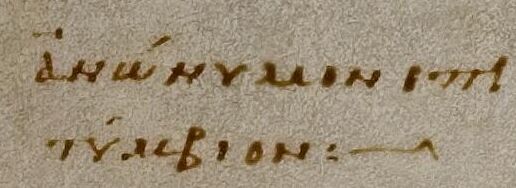 ἀνώνυμον ἐπι
τύμβιον :—